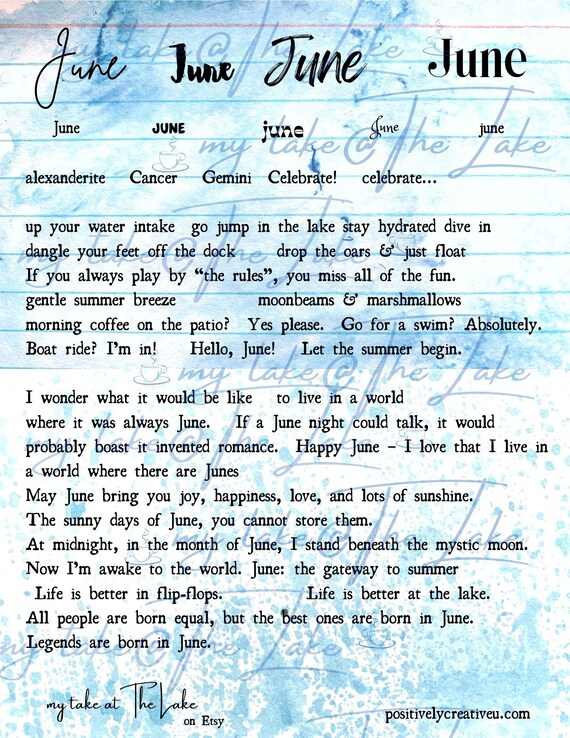 June June June June
June JUNE june June june
alexanderite Cancer Gemini Celebrate! celebrate...
up your water intake go jump in the lake stay hydrated dive in
dangle your feet off the dock drop the oars & just float
If you always play by “the rules”, you miss all of the fun.
gentle summer breeze moonbeams & marshmallows
morning coffee on the patio? Yes please. Go for a swim? Absolutely.
Boat ride? I'm in! Hello, June! Let the summer begin.
I wonder what it would be like to live in a world
where it was always June. If a June night could talk, it would
probably boast it invented romance. Happy June – I love that I live in
a world where there are Junes
May June bring you joy, happiness, love, and lots of sunshine.
The sunny days of June, you cannot store them.
At midnight, in the month of June, I stand beneath the mystic moon.
Now I'm awake to the world. June: the gateway to summer
Life is better in flip-flops. Life is better at the lake.
All people are born equal, but the best ones are born in June.
Legends are born in June.
my take at The Lake on Etsy
positivelycreativeu.com
my take @ The Lake
my take @ The Lake
my take @ The Lake
my take @ The Lake
my take @ The Lake
my take @ The Lake
my take @ The Lake